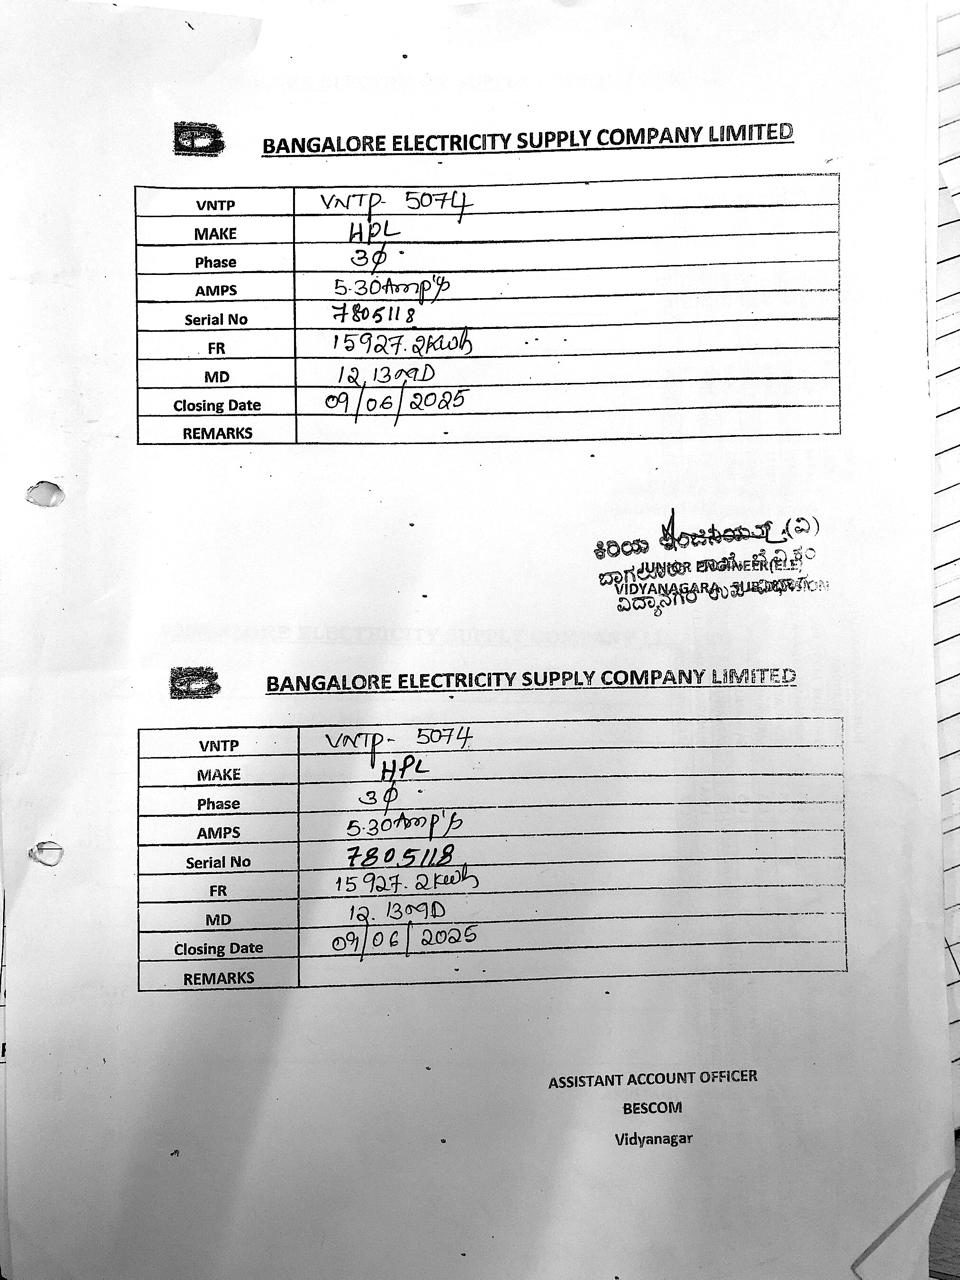 BANGALORE ELECTRICITY SUPPLY COMPANY LIMITED
VNTP VNTP- 5074
MAKE HPL
Phase 3ϕ
AMPS 5-30Amp's
Serial No 7805118
FR 15927.2kwh
MD 12.13
Closing Date 09/06/2025
REMARKS
ಕಿರಿಯ (ವಿ)
JUNIOR ENGINEER(ELE)
VIDYANAGARA SUB DIVISION
ವಿದ್ಯಾನಗರ ಉಪ ವಿಭಾಗ
BANGALORE ELECTRICITY SUPPLY COMPANY LIMITED
VNTP VNTP- 5074
MAKE HPL
Phase 3ϕ
AMPS 5-30Amp's
Serial No 7805118
FR 15927.2kwh
MD 12.13
Closing Date 09/06/2025
REMARKS
ASSISTANT ACCOUNT OFFICER
BESCOM
Vidyanagar